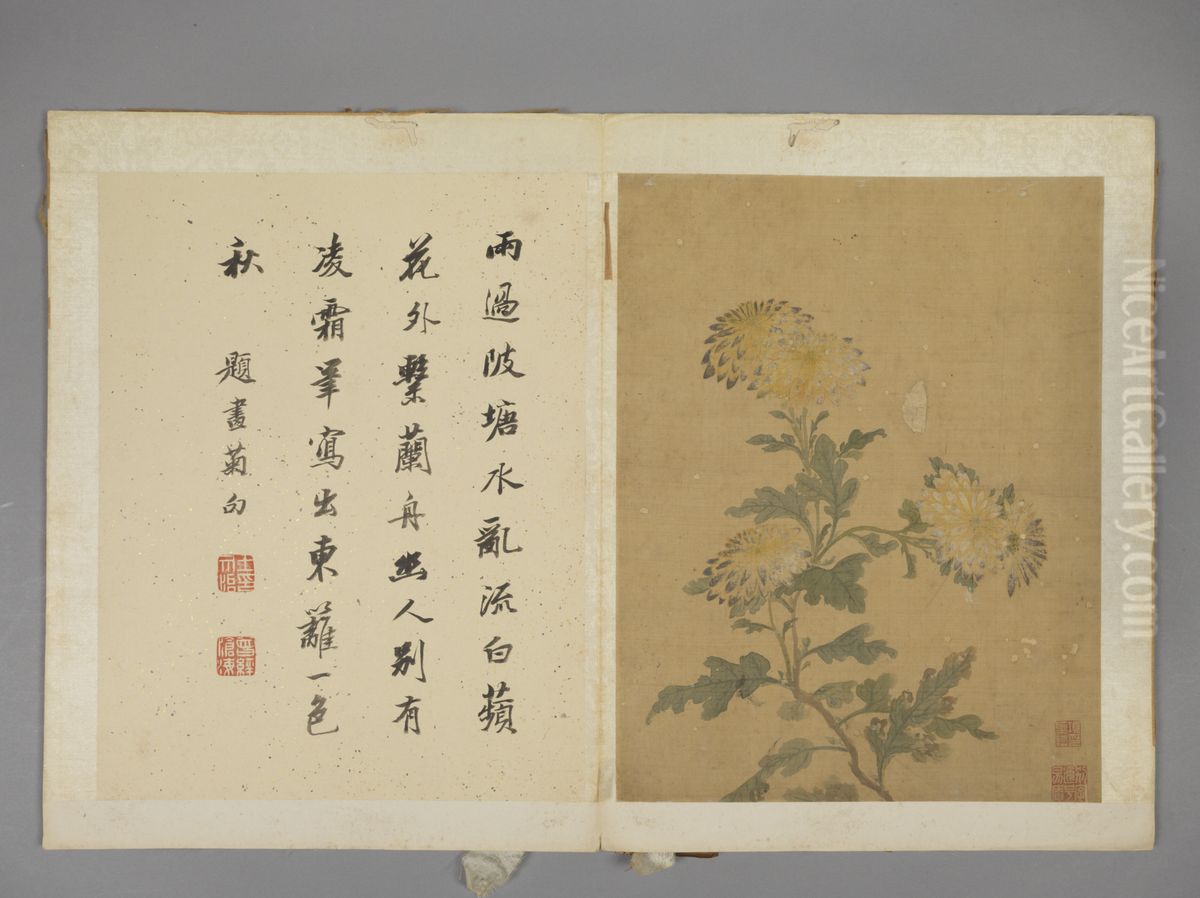 雨過陂塘水亂流白蘋
花外繫蘭舟幽人別有
凌霜筆寫出東籬一色
秋
題畫菊句
曾經滄海
NiceArtGallery.com